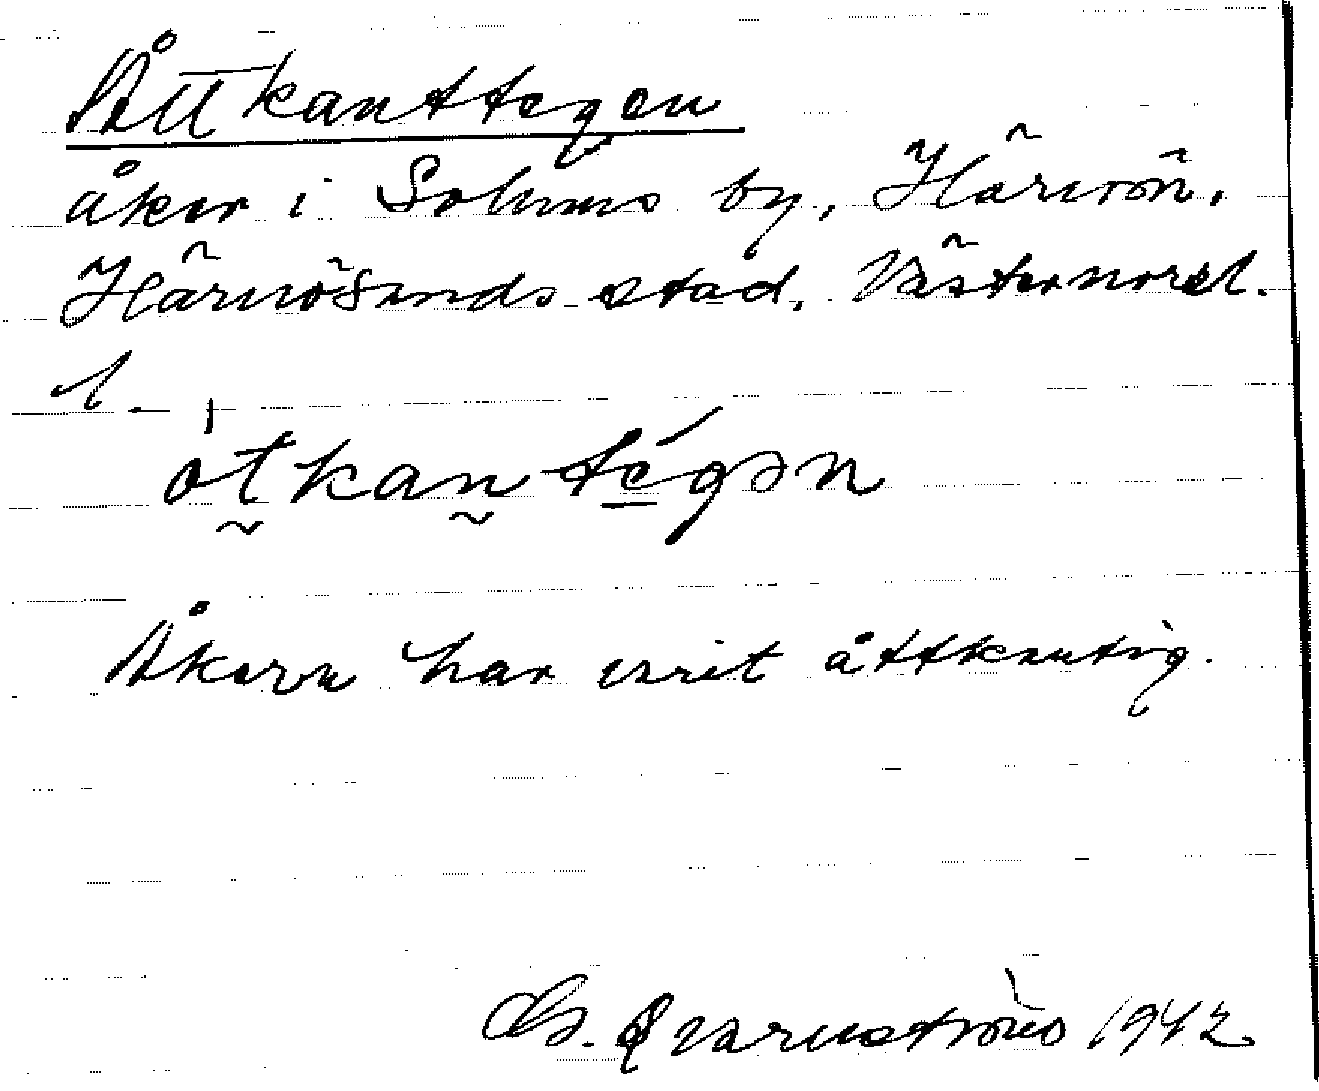 Åttkanttegen
åker i Solums by, Härnön,
Härnösands stad, Västernorrl.
l.
ò̰tkan̰té̱gən
Åkern har varit åttkantig.
G. Qvarnström 1942